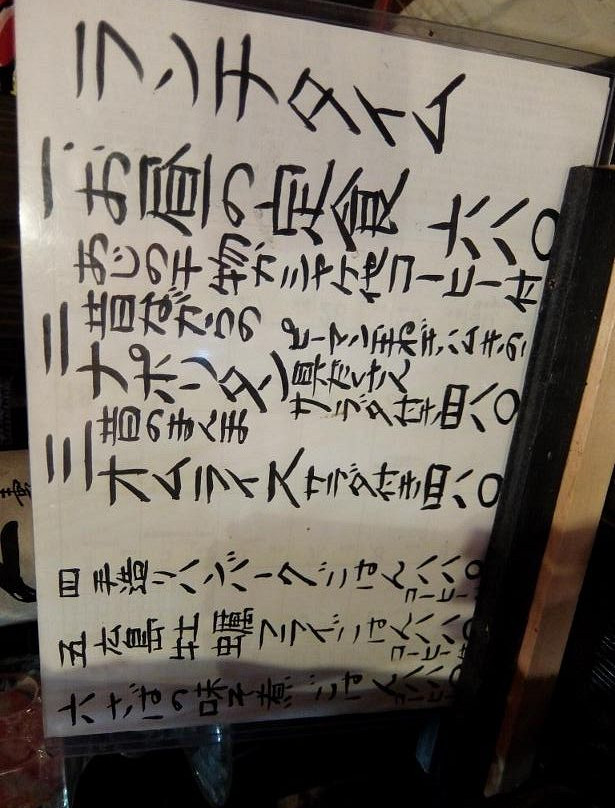 ランチタイム
一、お昼の定食 六八〇
あじの干物かシャケ他コーヒー付
二 昔ながらの
ナポリタン
ピーマン玉ねぎ、ハムきの
具だくさん
サラダ付き 四八〇
三 昔のまんま
オムライス サラダ付き 四八〇
四 手造りハンバーグごはん 八八〇
コーヒー付
五 広島牡蠣フライごはん 八八〇
コーヒー付
六 さばの味噌煮ごはん 八八〇
コーヒー